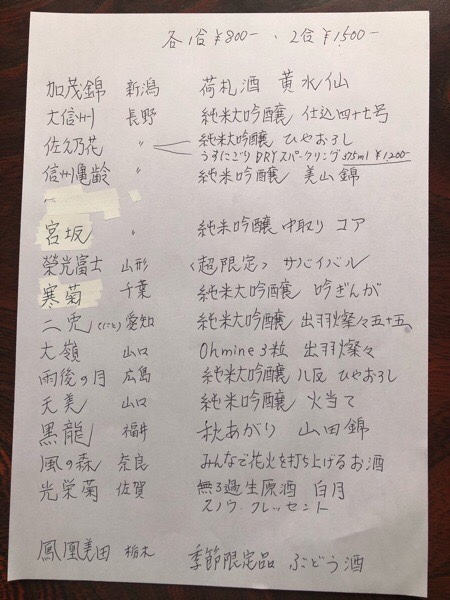 各1合 ¥800- 、2合 ¥1,500-
加茂錦 新潟 荷札酒 黄水仙
大信州 長野 純米大吟醸 仕込四十七号
佐久乃花 〃 純米大吟醸 ひやおろし
うすにごり DRYスパークリング 375ml ¥1,200-
信州亀齢 〃 純米吟醸 美山錦
宮坂 〃 純米吟醸 中取り コア
榮光冨士 山形 〈超限定〉 サバイバル
寒菊 千葉 純米大吟醸 吟ぎんが
二兎(にと) 愛知 純米大吟醸 出羽燦々五十五
大嶺 山口 Ohmine 3粒 出羽燦々
雨後の月 広島 純米大吟醸 八反 ひやおろし
天美 山口 純米吟醸 火当て
黒龍 福井 秋あがり 山田錦
風の森 奈良 みんなで花火を打ち上げるお酒
光栄菊 佐賀 無ろ過生原酒 白月
スノウ・クレッセント
鳳凰美田 栃木 季節限定品 ぶどう酒